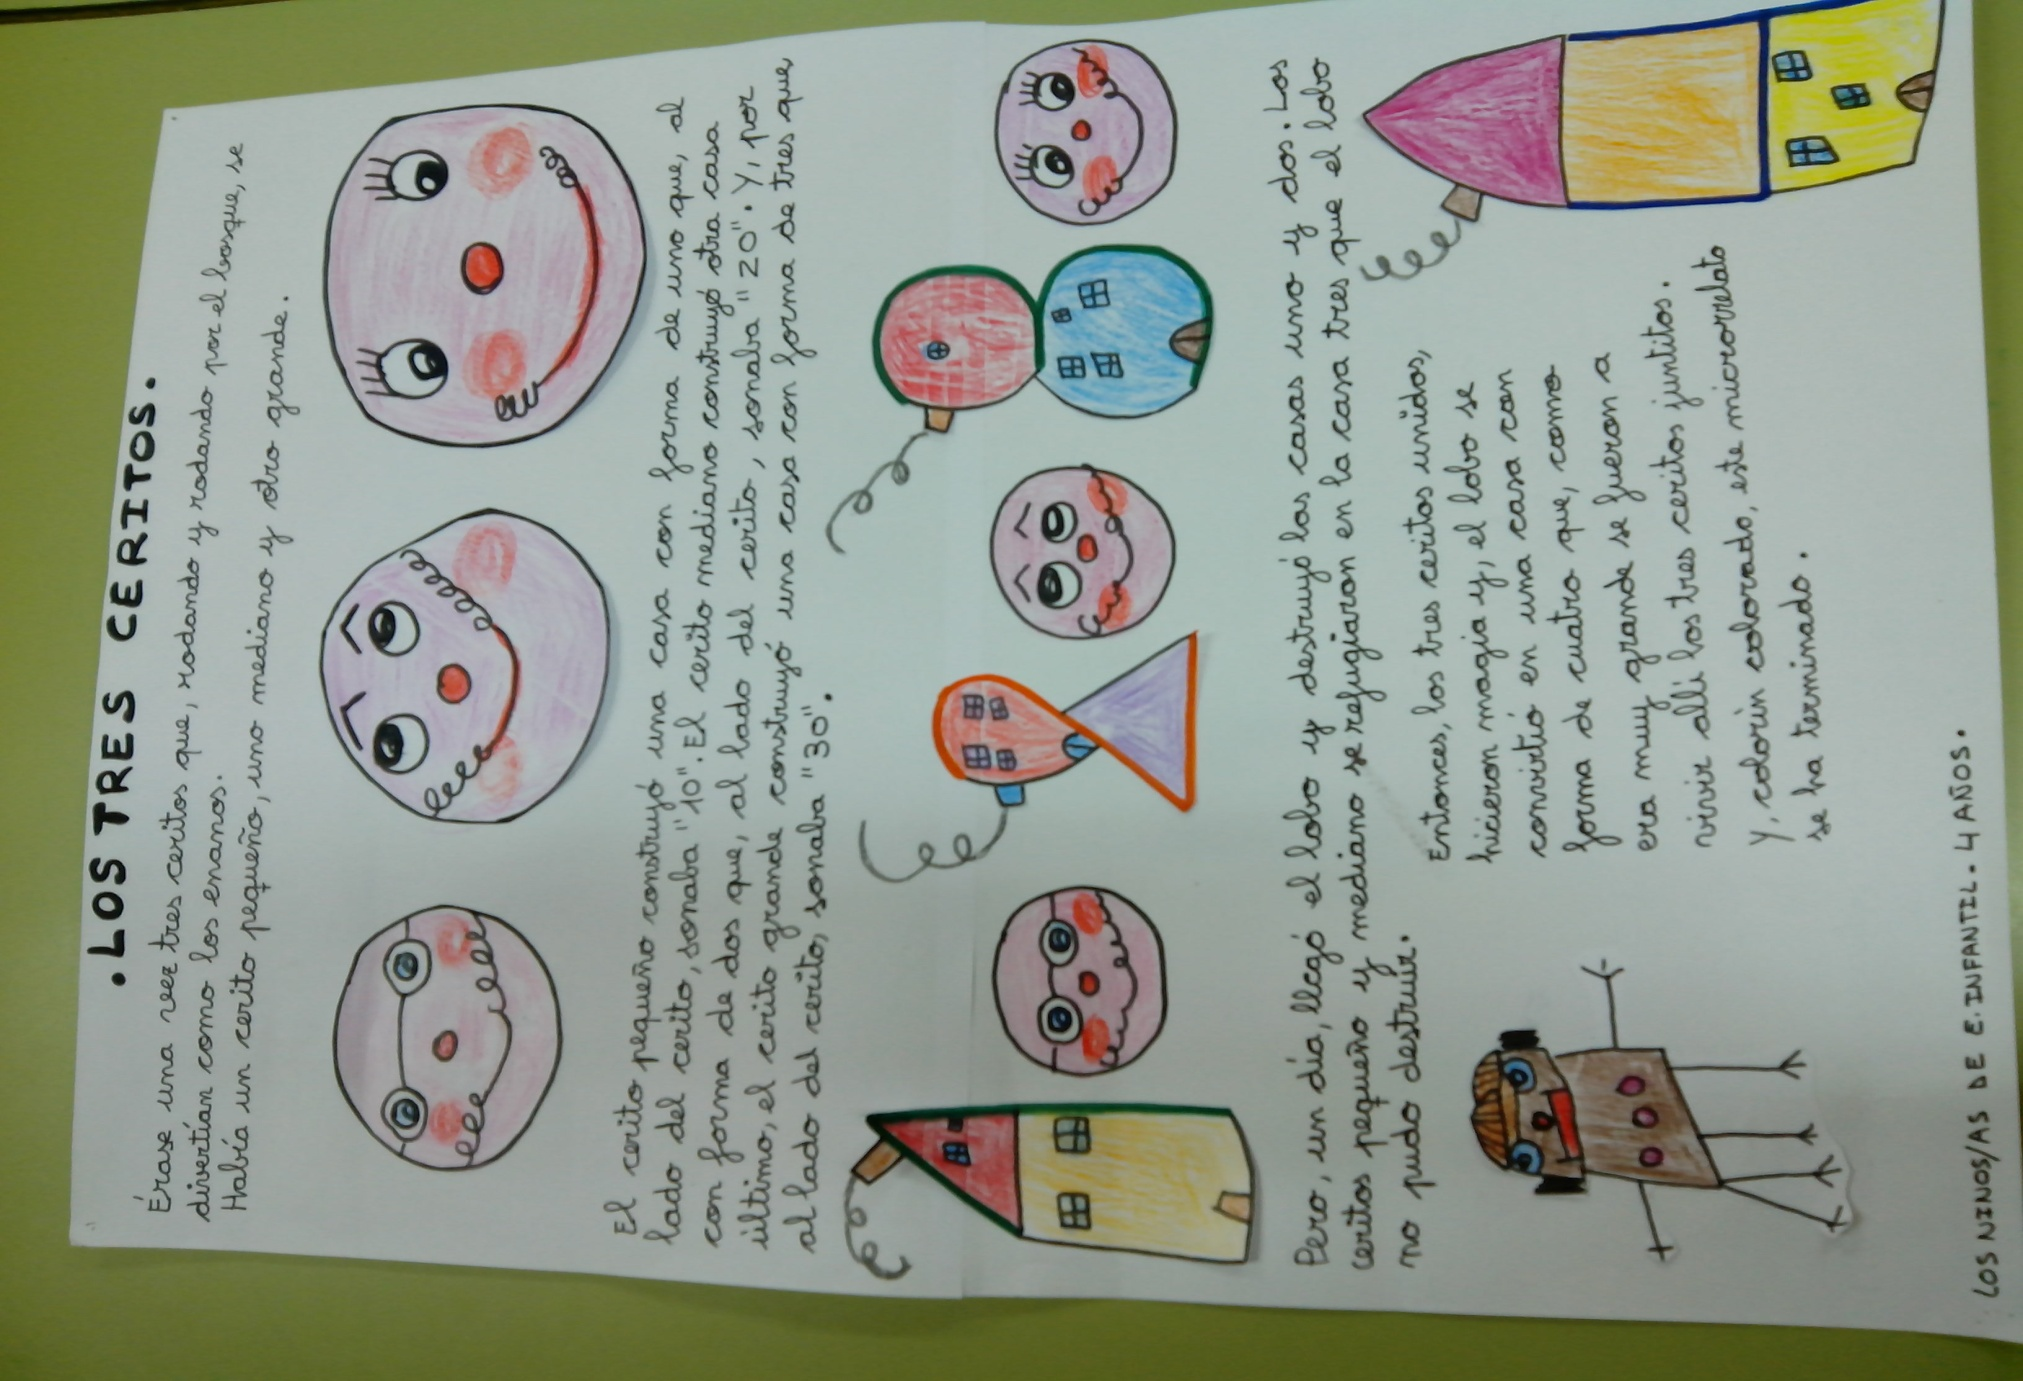 .LOS TRES CERITOS.
Érase una vez tres ceritos que, rodando y rodando por el bosque, se
divertían como los enanos.
Había un cerito pequeño, uno mediano y otro grande.
El cerito pequeño construyó una casa con forma de uno que, al
lado del cerito, sonaba "10". El cerito mediano construyó otra casa
con forma de dos que, al lado del cerito, sonaba "20". Y, por
último, el cerito grande construyó una casa con forma de tres que
al lado del cerito, sonaba "30".
Pero, un día, llegó el lobo y destruyó las casas uno y dos. Los
ceritos pequeño y mediano se refugiaron en la casa tres que el lobo
no pudo destruir.
Entonces, los tres ceritos unidos,
hicieron magia y, el lobo se
convirtió en una casa con
forma de cuatro que, como
era muy grande se fueron a
vivir allí los tres ceritos juntitos.
Y, colorín colorado, este microrrelato
se ha terminado.
LOS NIÑOS/AS DE E. INFANTIL. 4 AÑOS.